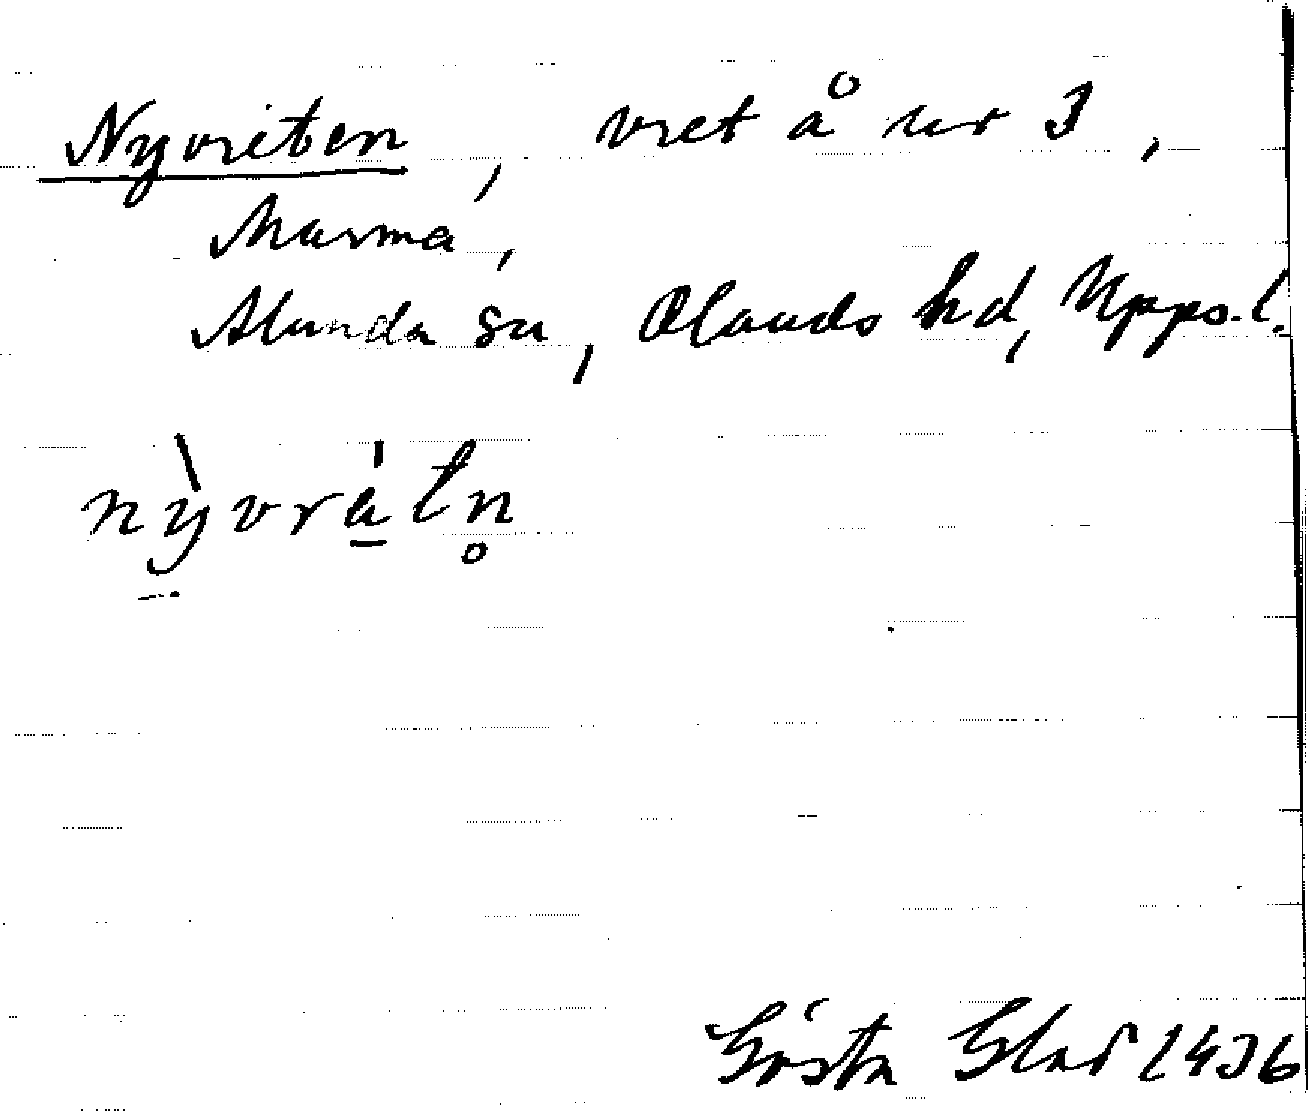 Nyvreten, vret å nr 3,
Marma,
Alunda sn, Olands hd, Upps. l.
nỳvra̲̍tn̥
Gösta Glad 1936